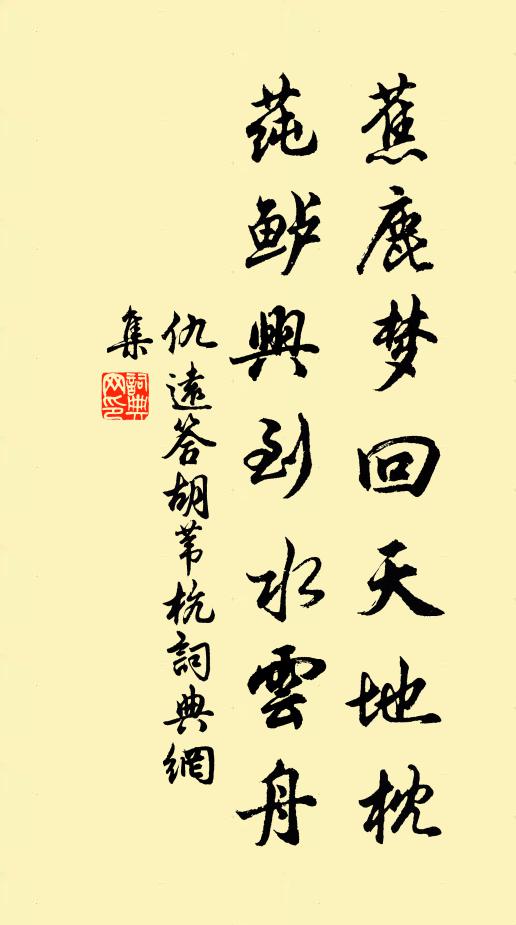 蕉鹿梦回天地枕
莼鲈興到水雲舟
仇遠答胡苇杭詞典網
集
詞典网印